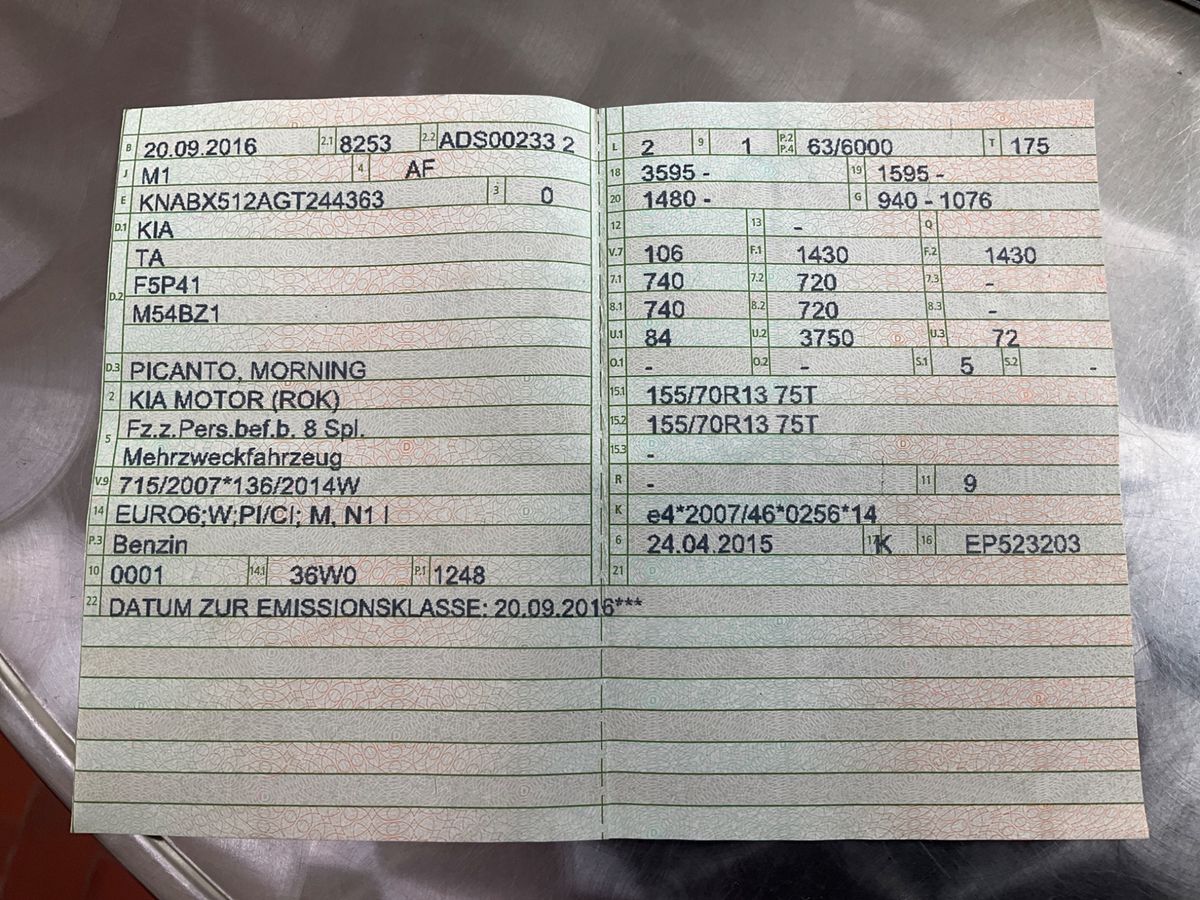 B 20.09.2016 2.1 8253 2.2 ADS00233 2
J M1 4 AF
E KNABX512AGT244363 3 0
D.1 KIA
TA
D.2 F5P41
M54BZ1
D.3 PICANTO, MORNING
2 KIA MOTOR (ROK)
5 Fz.z.Pers.bef.b. 8 Spl.
Mehrzweckfahrzeug
V.9 715/2007*136/2014W
14 EURO6;W;PI/CI; M, N1 I
P.3 Benzin
10 0001 14.1 36W0 P.1 1248
22 DATUM ZUR EMISSIONSKLASSE: 20.09.2016***
L 2 9 1 P.2 P.4 63/6000 T 175
18 3595 - 19 1595 -
20 1480 - G 940 - 1076
12 13 - Q
V.7 106 F.1 1430 F.2 1430
7.1 740 7.2 720 7.3 -
8.1 740 8.2 720 8.3 -
U.1 84 U.2 3750 U.3 72
O.1 - O.2 - S.1 5 S.2 -
15.1 155/70R13 75T
15.2 155/70R13 75T
15.3 -
R - 11 9
K e4*2007/46*0256*14
6 24.04.2015 17 K 16 EP523203
21